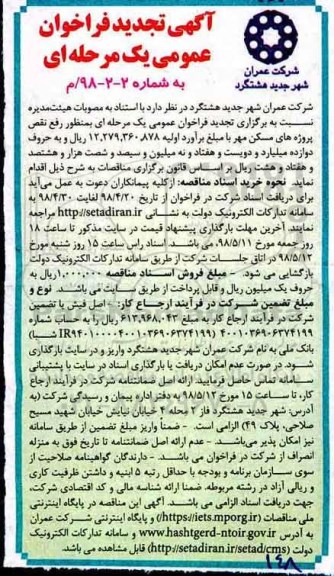 آگهی تجدید فراخوان
عمومی یک مرحله ای
به شماره ۲-۲-۹۸/م
شرکت عمران
شهر جدید هشتگرد
شرکت عمران شهر جدید هشتگرد در نظر دارد با استناد به مصوبات هیئت‌مدیره
نسبت به برگزاری تجدید فراخوان عمومی یک مرحله ای بمنظور رفع نقص
پروژه های مسکن مهر با مبلغ برآورد اولیه ۱۲,۲۷۹,۳۶۰,۸۷۸ ریال و به حروف
دوازده میلیارد و دویست و هفتاد و نه میلیون و سیصد و شصت هزار و هشتصد
و هفتاد و هشت ریال بر اساس قانون برگزاری مناقصات به شرح ذیل اقدام
نماید. نحوه خرید اسناد مناقصه: ازکلیه پیمانکاران دعوت به عمل می‌آید
برای دریافت اسناد شرکت در فراخوان از تاریخ ۹۸/۴/۲۰ لغایت ۹۸/۴/۳۰ به
سامانه تدارکات الکترونیک دولت به نشانی http://setadiran.ir مراجعه
نمایند. آخرین مهلت بارگذاری پیشنهاد قیمت در سایت مذکور تا ساعت ۱۸
روز جمعه مورخ ۹۸/۵/۱۱ می باشد. اسناد راس ساعت ۱۵ روز شنبه مورخ
۹۸/۵/۱۲ در اتاق جلسات شرکت از طریق سامانه تدارکات الکترونیک دولت
بازگشایی می شود. - مبلغ فروش اسناد مناقصه ۱,۰۰۰,۰۰۰ریال به
حروف یک میلیون ریال و قابل پرداخت از طریق سایت می باشد. نوع و
مبلغ تضمین شرکت در فرآیند ارجاع کار: - اصل فیش یا تضمین
شرکت در فرآیند ارجاع کار به مبلغ ۶۱۳,۹۶۸,۰۴۳ ریال را به حساب شماره
بانک ملی به نام شرکت عمران شهر جدید هشتگرد واریز و در سایت بارگذاری
شود. در صورت عدم امکان دریافت یا بارگذاری اسناد در سایت با پشتیبانی
سامانه تماس حاصل فرمایید. ارائه اصل ضمانتنامه شرکت در فرآیند ارجاع
کار، تا ساعت ۱۵ مورخ ۹۸/۵/۱۲ به دفتر اداره پیمان و رسیدگی شرکت (به
آدرس: شهر جدید هشتگرد فاز ۲ محله ۴ خیابان نیایش خیابان شهید مسیح
صلاحی، پلاک ۴۹) الزامی است. - ضمناً واریز مبلغ تضمین از طریق سامانه
نیز امکان پذیر می‌باشد. - عدم ارائه اصل ضمانتنامه تا تاریخ فوق به منزله
انصراف از شرکت در فراخوان می باشد. - دارندگان گواهینامه صلاحیت از
سوی سازمان برنامه و بودجه با حداقل رتبه ۵ ابنیه و داشتن ظرفیت کاری
و ریالی آزاد در رشته مربوطه، ضمنا ارائه شناسه ملی و کد اقتصادی شرکت،
جهت دریافت اسناد الزامی می باشد. آگهی این مناقصه در پایگاه اینترنتی
ملی مناقصات (https://iets.mporg.ir) و پایگاه اینترنتی شرکت عمران
به آدرس www.hashtgerd-ntoir.gov.ir و سامانه تدارکات الکترونیک
دولت (http://setadiran.ir/setad/cms) قابل مشاهده می باشد.
۱۴۸